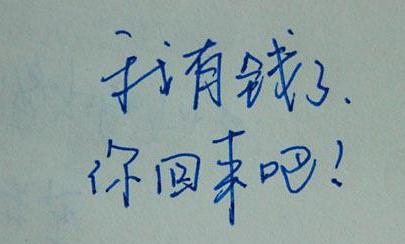 我有钱了.
你回来吧!